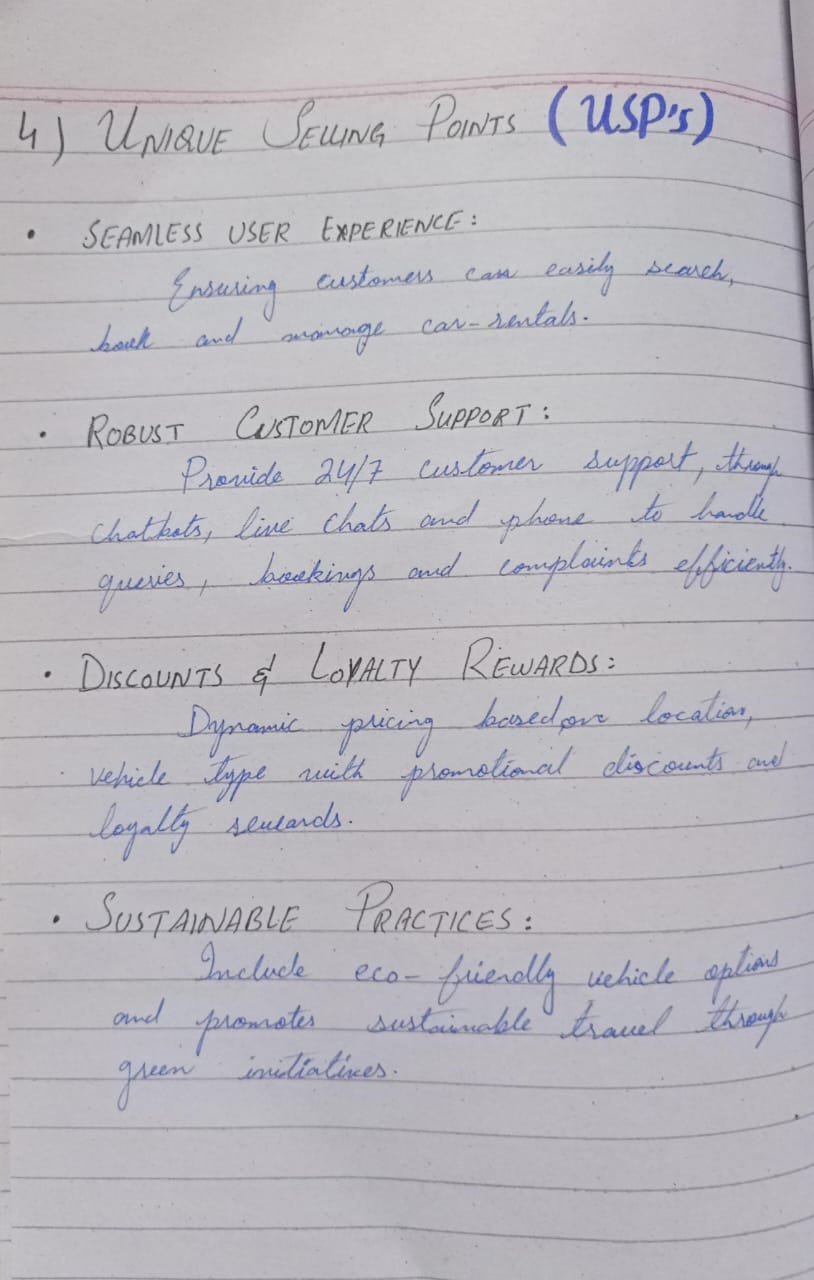 4) UNIQUE SELLING POINTS (USP's)
• SEAMLESS USER EXPERIENCE:
Ensuring customers can easily search,
book and manage car-rentals.
• ROBUST CUSTOMER SUPPORT:
Provide 24/7 customer support, through
chatbots, live chats and phone to handle
queries, bookings and complaints efficiently.
• DISCOUNTS & LOYALTY REWARDS:
Dynamic pricing based on location,
vehicle type with promotional discounts and
loyalty rewards.
• SUSTAINABLE PRACTICES:
Include eco-friendly vehicle options
and promotes sustainable travel through
green initiatives.